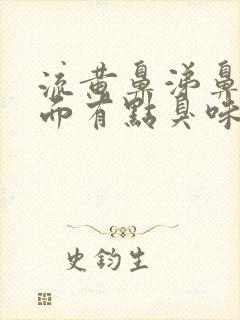 流黃鼻涕鼻
而有點臭味
史鈞生